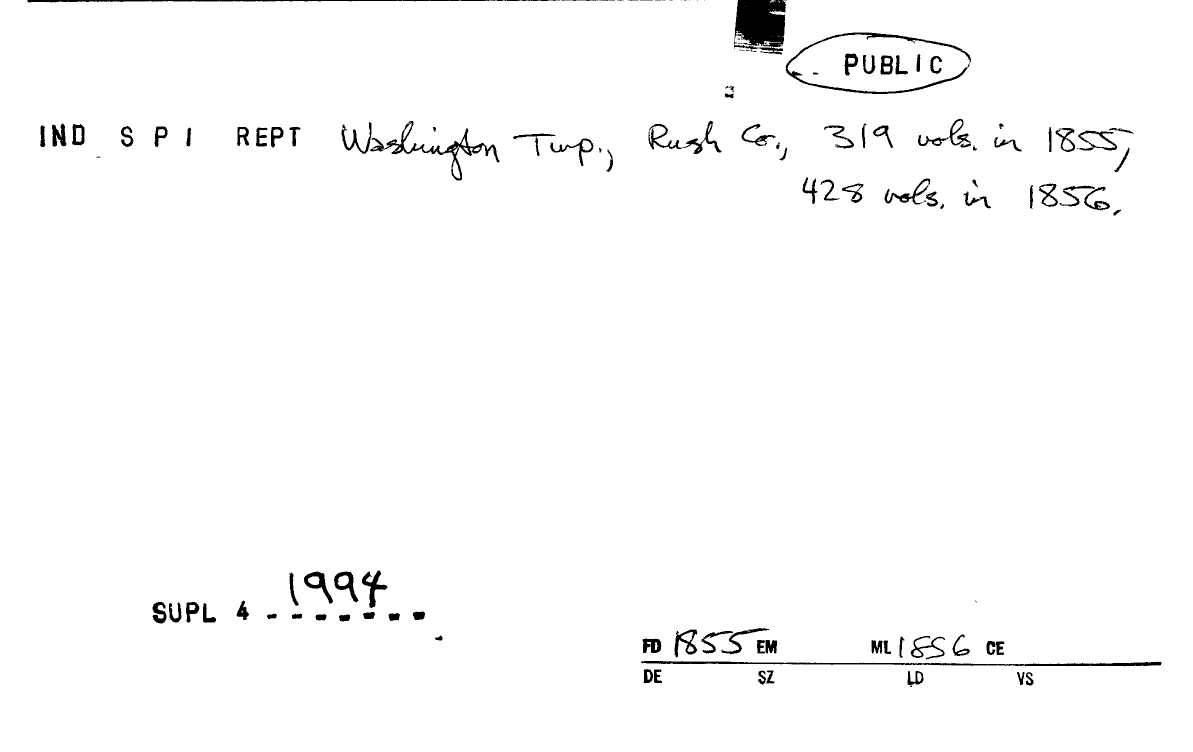 PUBLIC
IND S P I REPT Washington Twp., Rush Co., 319 vols. in 1855,
428 vols. in 1856.
SUPL 4 - - - - - - - 1994
FD 1855 EM ML 1856 CE
DE SZ LD VS